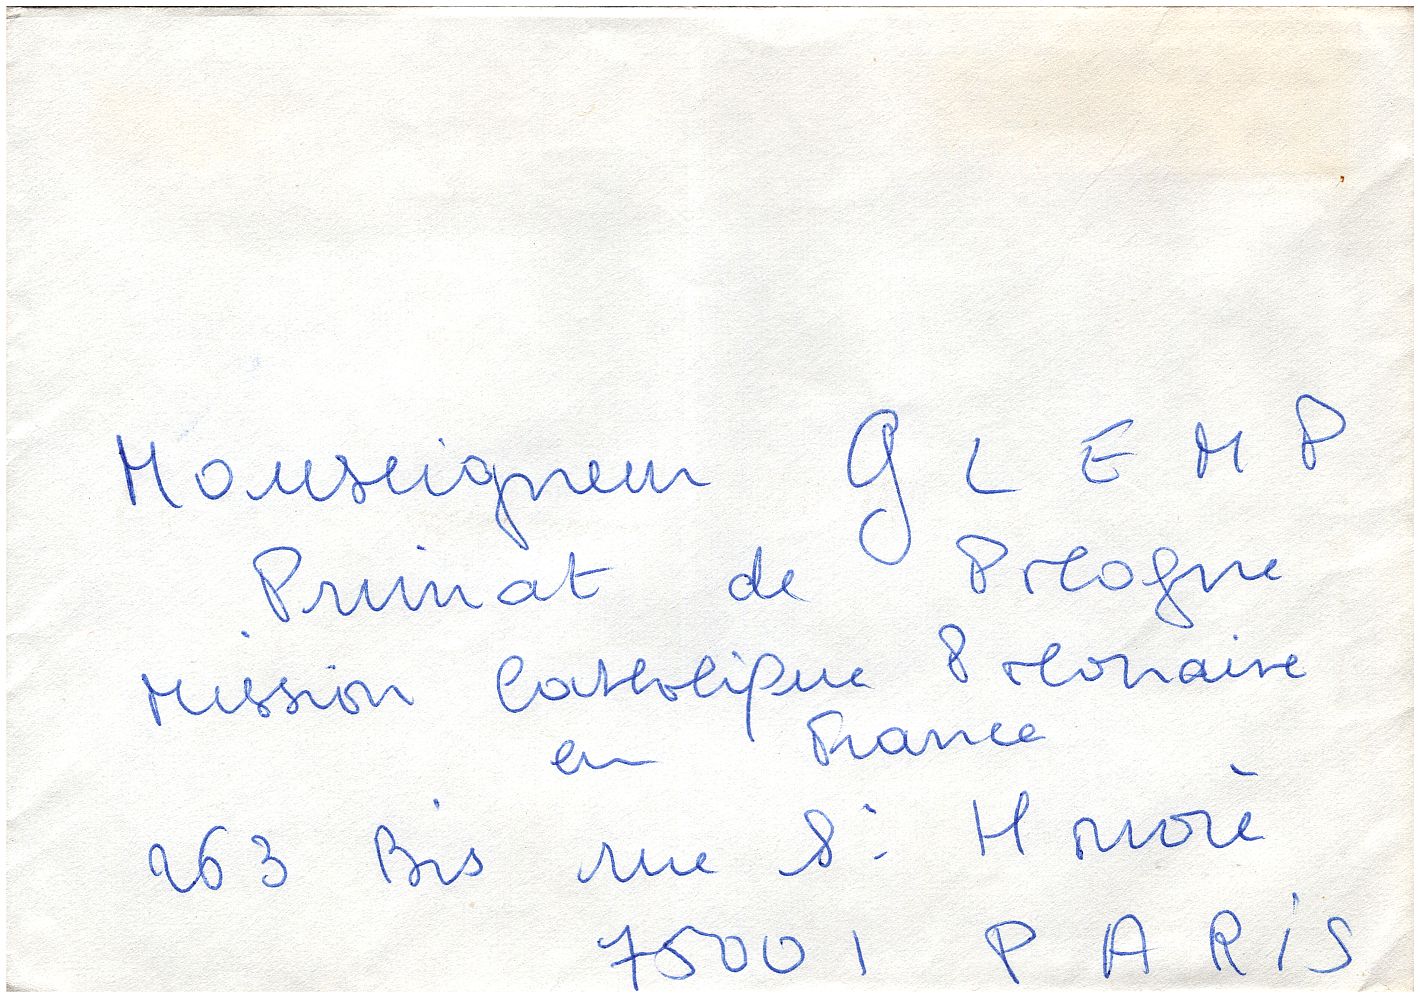 Monseigneur GLEMP
Primat de Pologne
Mission Catholique Polonaise
en France
263 Bis rue St Honoré
75001 PARiS